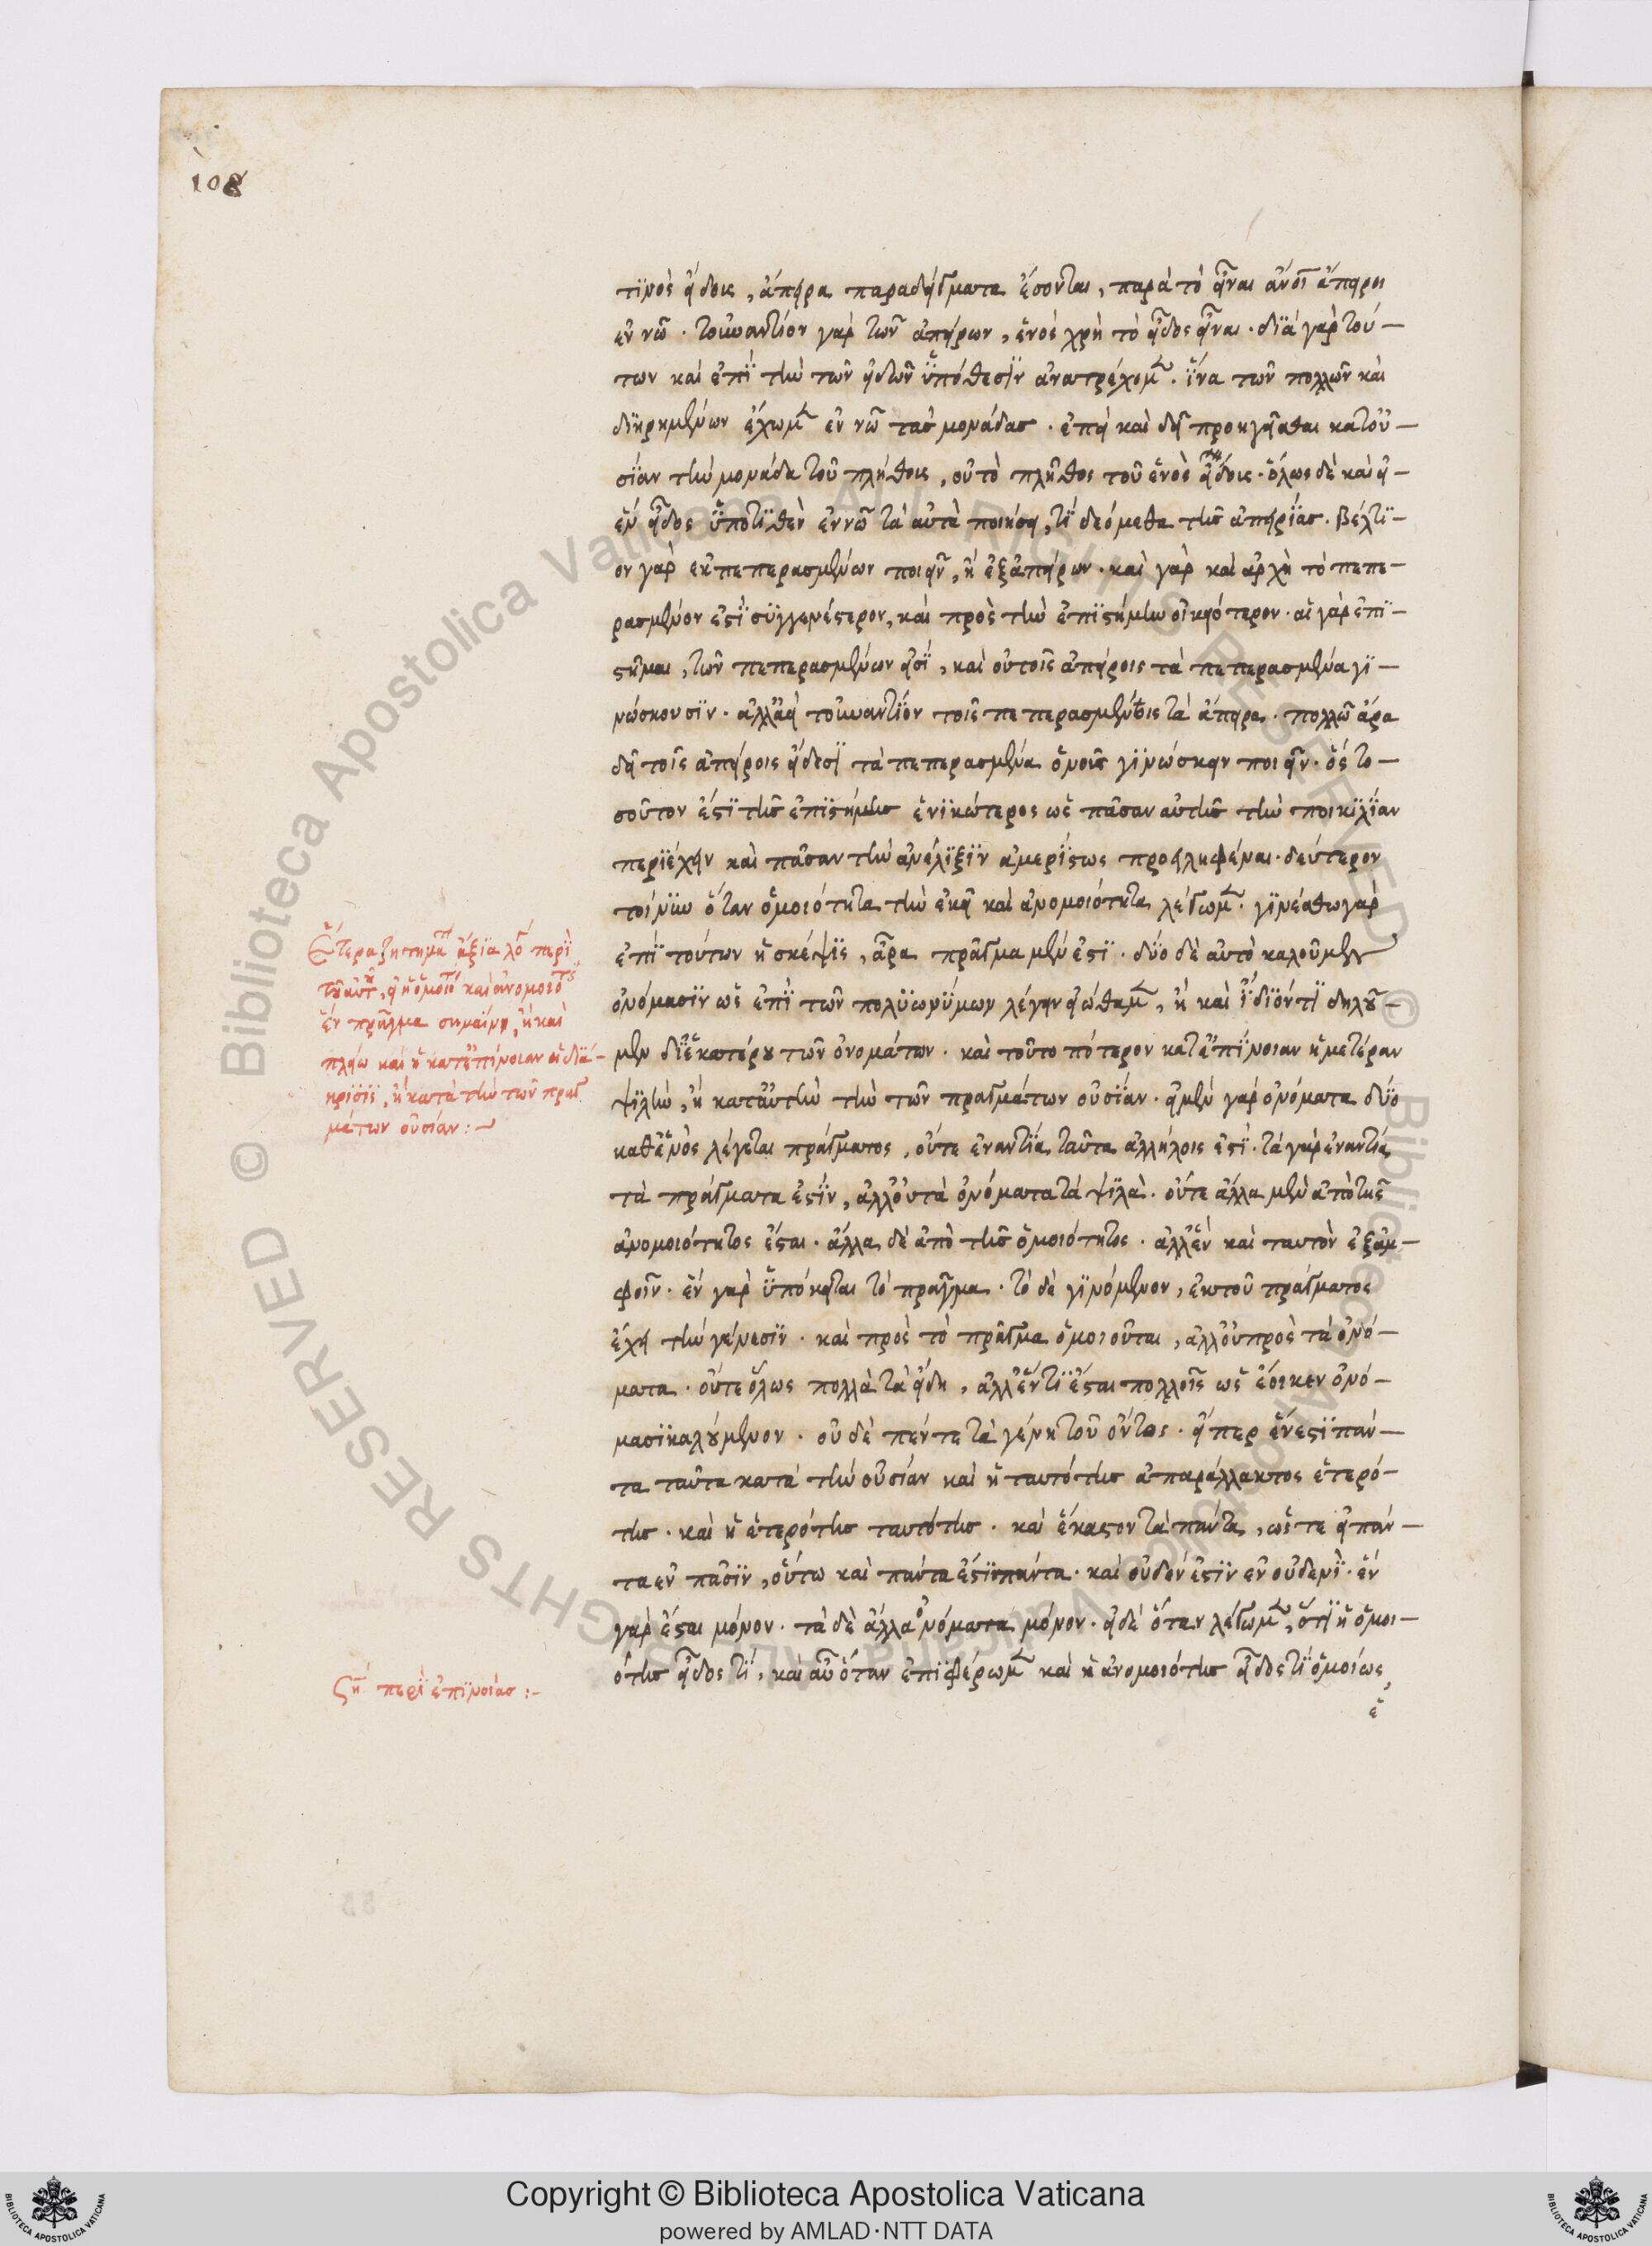 108
τινὸς εἴδους, ἄπειρα παραδείγματα ἔσονται, παρὰ τὸ εἶναι ἄνοι ἄπειροι
ἐν νῶ. τοὐναντίον γὰρ τῶν ἀπείρων, ἑνὸς χρὴ τὸ εἶδος εἶναι. διὰ γὰρ τού-
των καὶ ἐπὶ τὴν τῶν εἰδῶν ὑπόθεσιν ἀνατρέχομεν. ἵνα τῶν πολλῶν καὶ
διῃρημένων ἔχωμεν ἐν νῶ τὰς μονάδας. ἐπεὶ καὶ δεῖ προηγεῖσθαι κατοὐ-
σίαν τὴν μονάδα τοῦ πλήθους, οὐ τὸ πλῆθος τοῦ ἑνὸς εἴδους. ὅλως δὲ καὶ εἰ
ἓν εἶδος ὑποτιθὲν ἐν νῶ τὰ αὐτὰ ποιήσει, τί δεόμεθα τῆς ἀπειρίας. βέλτι-
ον γὰρ ἐκ πεπερασμένων ποιεῖν, ἢ ἐξ ἀπείρων. καὶ γὰρ καὶ ἀρχὴ τὸ πεπε-
ρασμένον ἐστὶ συγγενέστερον, καὶ πρὸς τὴν ἐπιστήμην οἰκειότερον. αἱ γὰρ ἐπι-
στῆμαι, τῶν πεπερασμένων εἰσὶ, καὶ οὐ τοῖς ἀπείροις τὰ πεπερασμένα γι-
νώσκουσιν. ἀλλ' ἀεὶ τοὐναντίον τοῖς πεπερασμένοις τὰ ἄπειρα. πολλῶ ἄρα
δεῖ τοῖς ἀπείροις εἴδεσι τὰ πεπερασμένα ὁ νοῦς γινώσκειν ποιεῖν. ὃς το-
σοῦτον ἐστὶ τῆς ἐπιστήμης ἑνικώτερος ὡς πᾶσαν αὐτῆς τὴν ποικιλίαν
περιέχειν καὶ πᾶσαν τὴν ἀνέλιξιν ἀμερίστως προειληφέναι. δεύτερον
τοίνυν ὅταν ὁμοιότητα τὴν ἐκεῖ καὶ ἀνομοιότητα λέγωμεν. γινέσθω γὰρ
ἐπὶ τούτων ἡ σκέψις, ἆρα πρᾶγμα μὲν ἐστὶ. δύο δὲ αὐτὸ καλοῦμεν
ὀνόμασιν ὡς ἐπὶ τῶν πολυωνύμων λέγειν εἰώθαμεν, ἢ καὶ ἴδιόν τι δηλοῦ-
μεν δι' ἑκατέρου τῶν ὀνομάτων. καὶ τοῦτο πότερον κατ' ἐπίνοιαν ἡμετέραν
ψιλὴν, ἢ κατ' αὐτὴν τὴν τῶν πραγμάτων οὐσίαν. εἰ μὲν γὰρ ὀνόματα δύο
καθ' ἑνὸς λέγεται πράγματος, οὔτε ἐναντία ταῦτα ἀλλήλοις ἐστὶ. τὰ γὰρ ἐναντία
τὰ πράγματα ἐστὶν, ἀλλ' οὐ τὰ ὀνόματα τὰ ψιλὰ. οὔτε ἄλλα μὲν ἀπὸ τῆς
ἀνομοιότητος ἔσται. ἄλλα δὲ ἀπὸ τῆς ὁμοιότητος. ἀλλ' ἓν καὶ ταυτὸν ἐξ ἀμ-
φοῖν. ἓν γὰρ ὑπόκειται τὸ πρᾶγμα. τὸ δὲ γινόμενον, ἐκ τοῦ πράγματος
ἔχει τὴν γένεσιν. καὶ πρὸς τὸ πρᾶγμα ὁμοιοῦται, ἀλλ' οὐ πρὸς τὰ ὀνό-
ματα. οὔτε ὅλως πολλὰ τὰ εἴδη, ἀλλ' ἕν τι ἔσται πολλοῖς ὡς ἔοικεν ὀνό-
μασι καλούμενον. οὐδὲ πέντε τὰ γένη τοῦ ὄντος. εἴπερ ἕν ἐστὶ πάν-
τα ταῦτα κατὰ τὴν οὐσίαν καὶ ἡ ταυτότης ἀπαράλλακτος ἑτερό-
της. καὶ ἡ ἑτερότης ταυτότης. καὶ ἕκαστον τὰ πάντα, ὥστε εἰ πάν-
τα ἐν πᾶσιν, οὕτω καὶ πάντα ἐστὶ πάντα. καὶ οὐδέν ἐστιν ἐν οὐδενὶ. ἓν
γὰρ ἔσται μόνον. τὰ δὲ ἄλλα ὀνόματα μόνον. εἰ δὲ ὅταν λέγωμεν, ὅτι ἡ ὁμοι-
ότης εἶδος τί, καὶ αὖ ὅταν ἐπιφέρωμεν καὶ ἡ ἀνομοιότης εἶδος τὶ ὁμοίως,
Ἕτερα ζητήματα ἄξια λόγου περὶ
τοῦ αὐτοῦ, εἰ ἡ ὁμοιότης καὶ ἀνομοιότης
ἓν πρᾶγμα σημαίνει, ἢ καὶ
πλείω καὶ ἢ κατ' ἐπίνοιαν ἡ διά-
κρισις, ἢ κατὰ τὴν τῶν πραγ
μάτων οὐσίαν:~
ση περὶ ἐπινοίας:-
Copyright © Biblioteca Apostolica Vaticana
powered by AMLAD·NTT DATA